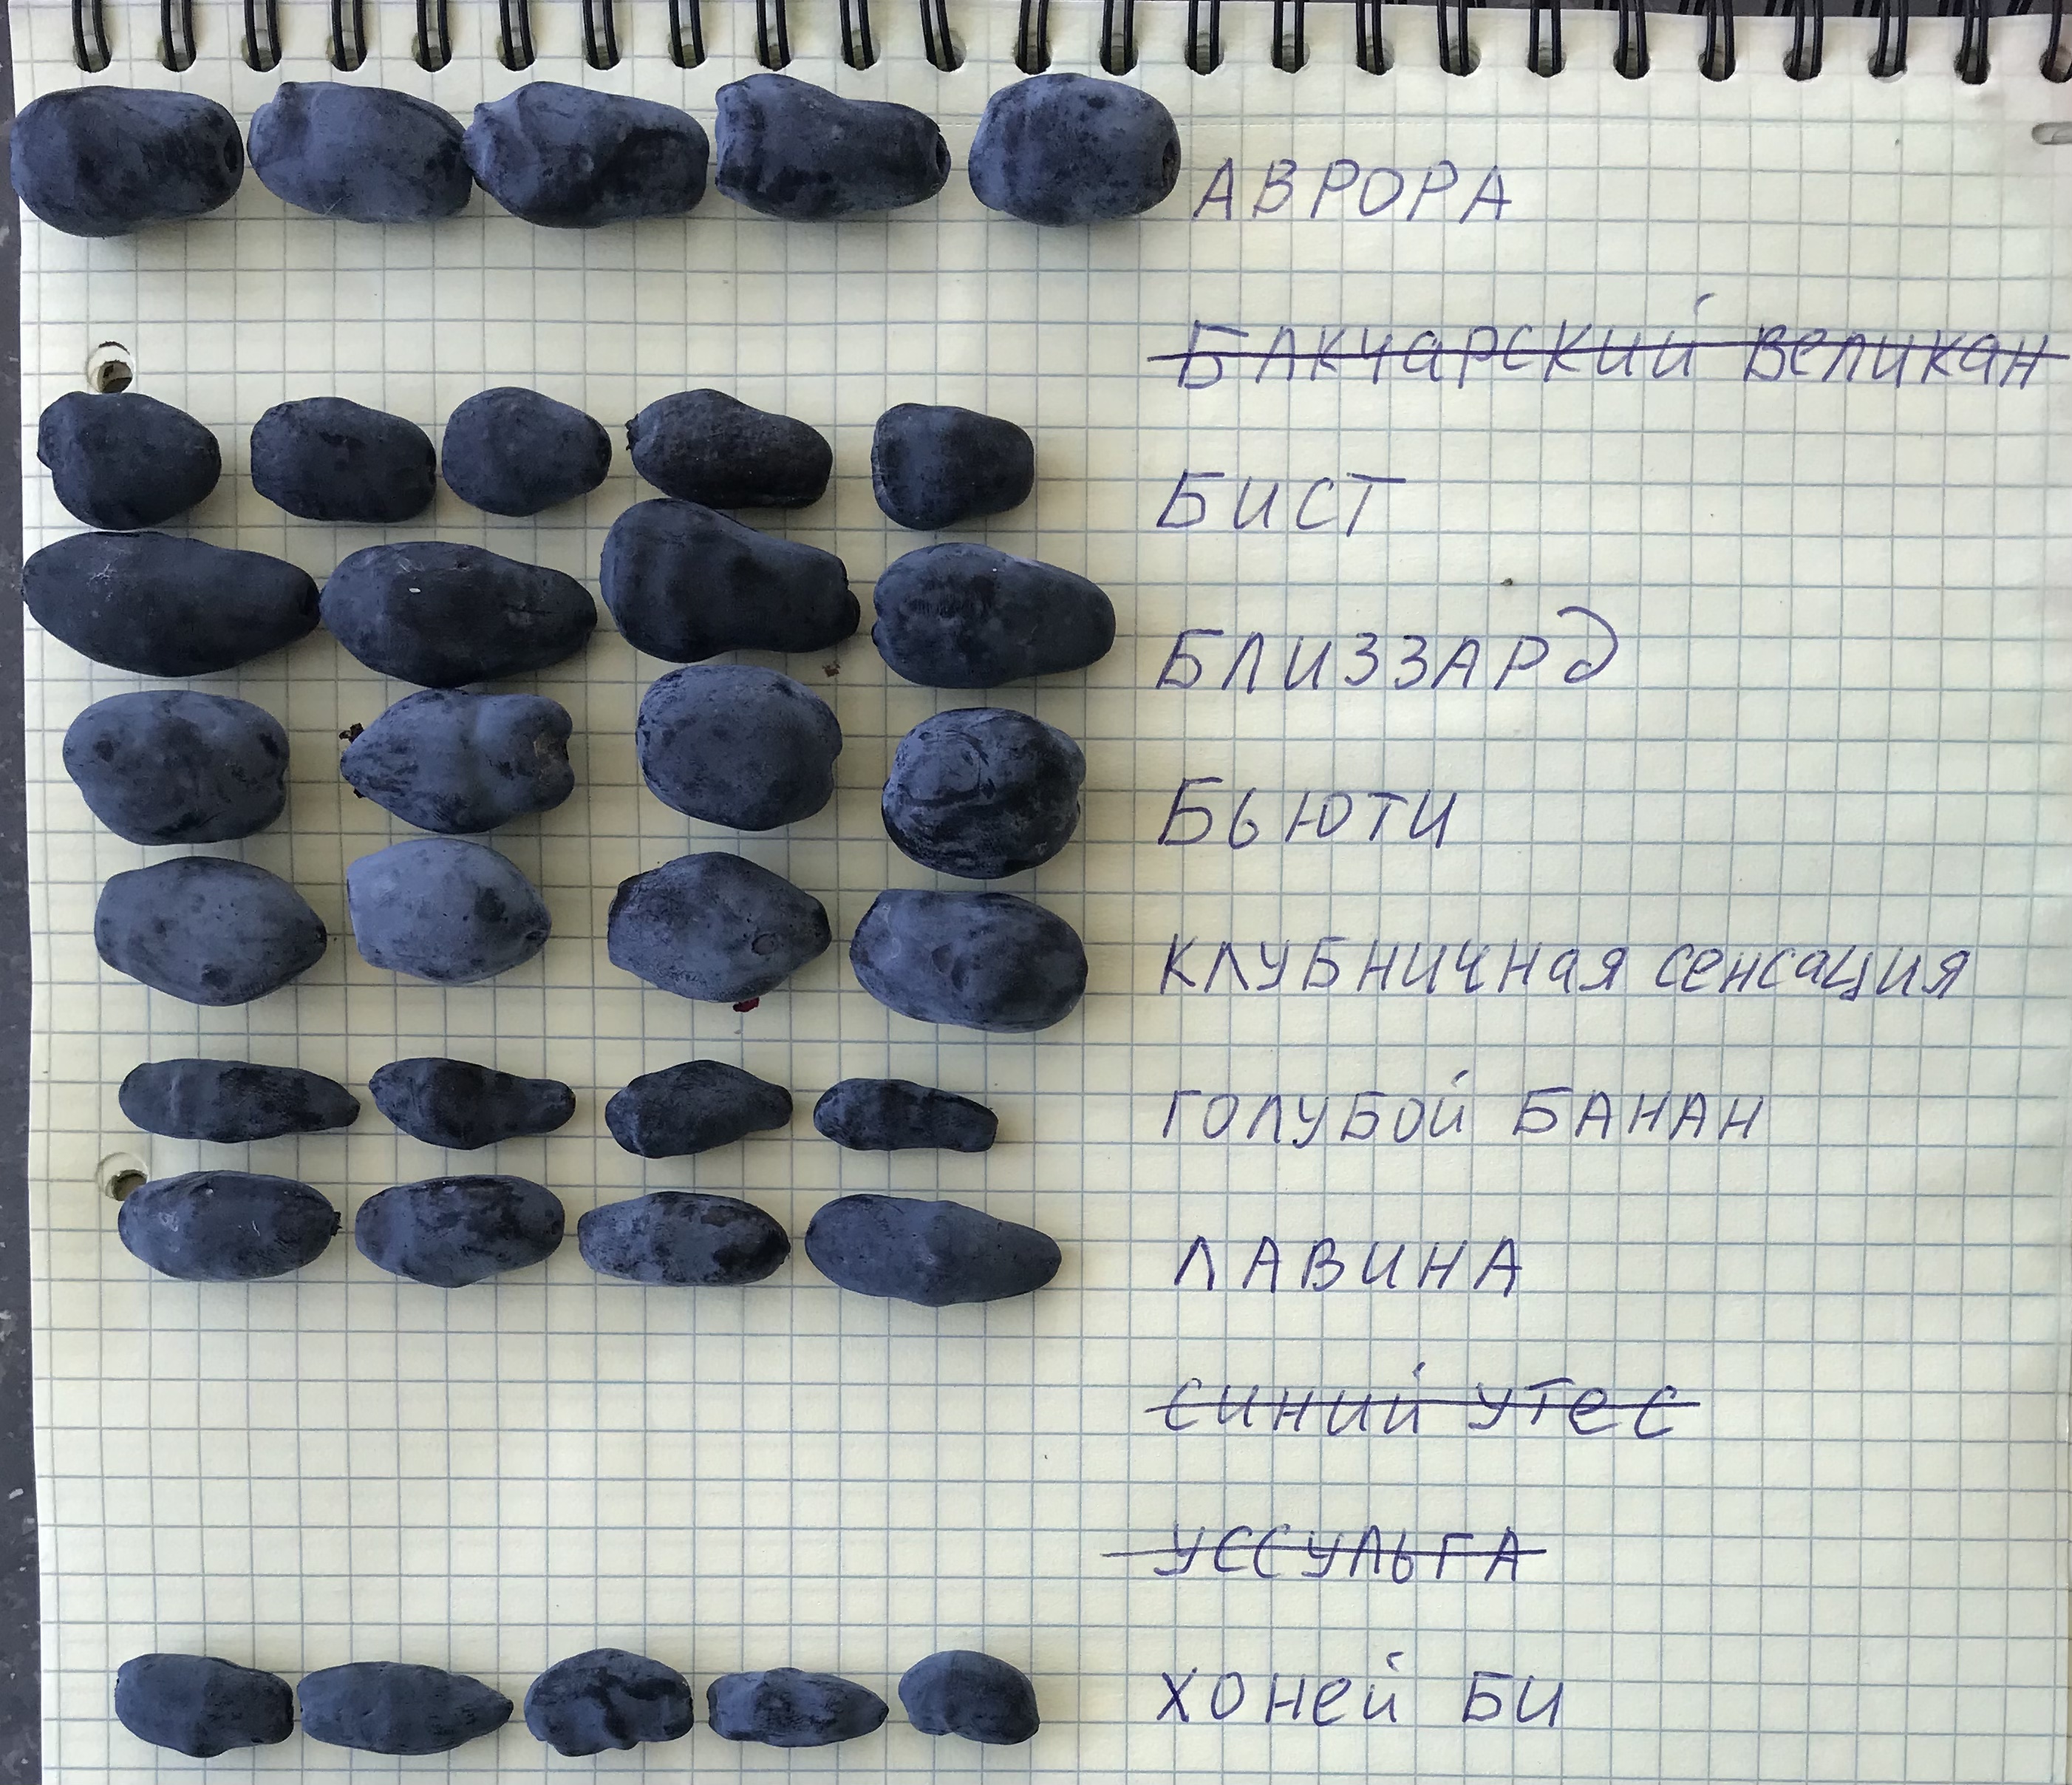 АВРОРА
БАКЧАРСКИЙ ВЕЛИКАН
БИСТ
БЛИЗЗАРД
БЬЮТИ
КЛУБНИЧНАЯ СЕНСАЦИЯ
ГОЛУБОЙ БАНАН
ЛАВИНА
СИНИЙ УТЕС
УССУЛЬГА
ХОНЕЙ БИ